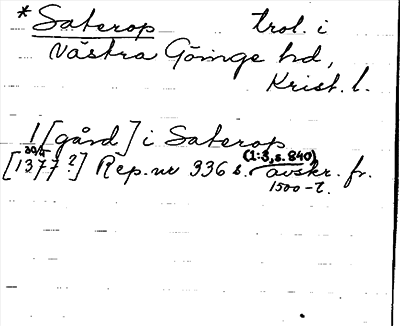 * Saterop trol. i
Västra Göinge hd,
Krist. l.
1 [gård] i Saterop
30/4 (1:3, s. 840)
[1377?] Rep. nr 336 s. avskr. fr.
1500-t.